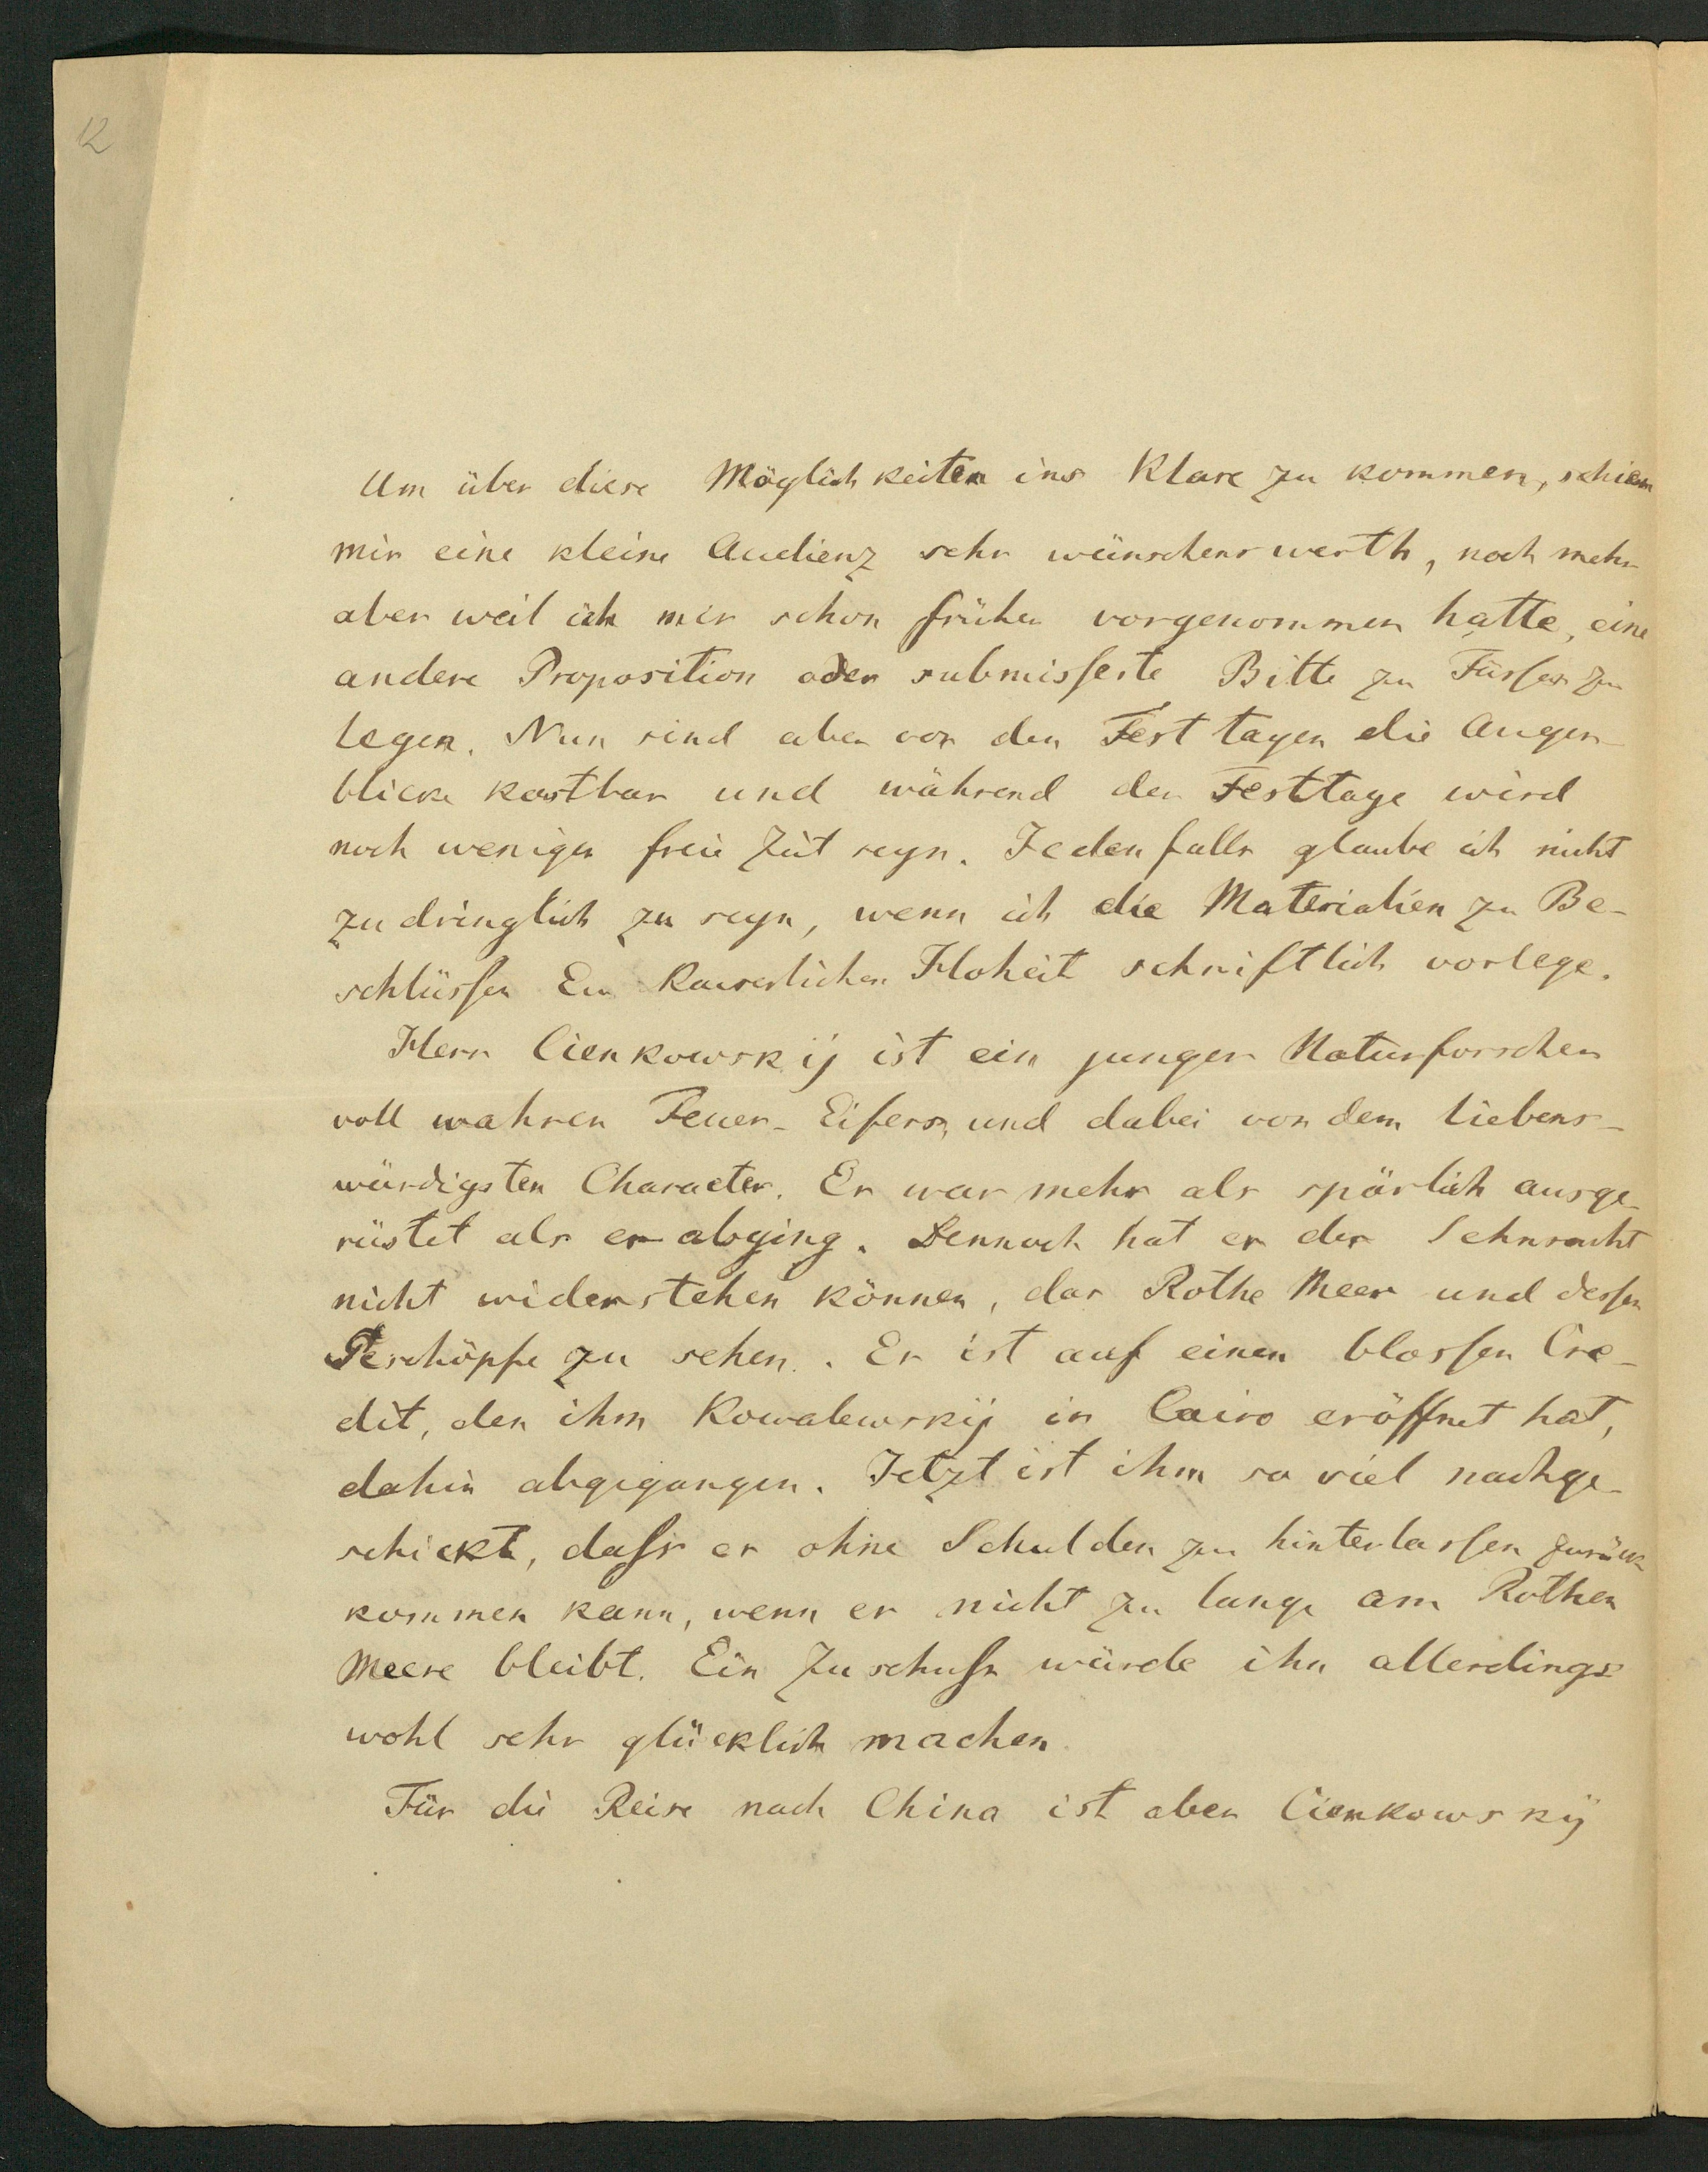 12
Um über diese Möglichkeiten ins Klare zu kommen, schien
mir eine kleine Audienz sehr wünschenswerth, noch mehr
aber weil ich mir schon früher vorgenommen hatte, eine
andere Proposition oder submisseste Bitte zu Füssen zu
legen. Nun sind aber vor den Festtagen die Augen-
blicke kostbar und während der Festtage wird
noch weniger freie Zeit seyn. Jedenfalls glaube ich nicht
zudringlich zu seyn, wenn ich die Materialien zu Be-
schlüssen Ew. Kaiserlichen Hoheit schriftlich vorlege.
Herr Cienkowskij ist ein junger Naturforscher
voll wahren Feuer-Eifers, und dabei von dem liebens-
würdigsten Character. Er war mehr als spärlich ausge-
rüstet als er abging. Dennoch hat er der Sehnsucht
nicht widerstehen können, das Rothe Meer und dessen
Geschöpfe zu sehen. Er ist auf einen blossen Cre-
dit, den ihm Kowalewskij in Cairo eröffnet hat,
dahin abgegangen. Jetzt ist ihm so viel nachge-
schickt, dass er ohne Schulden zu hinterlassen zurück
kommen kann, wenn er nicht zu lange am Rothen
Meere bleibt. Ein Zuschuss würde ihn allerdings
wohl sehr glücklich machen
Für die Reise nach China ist aber Cienkowskij